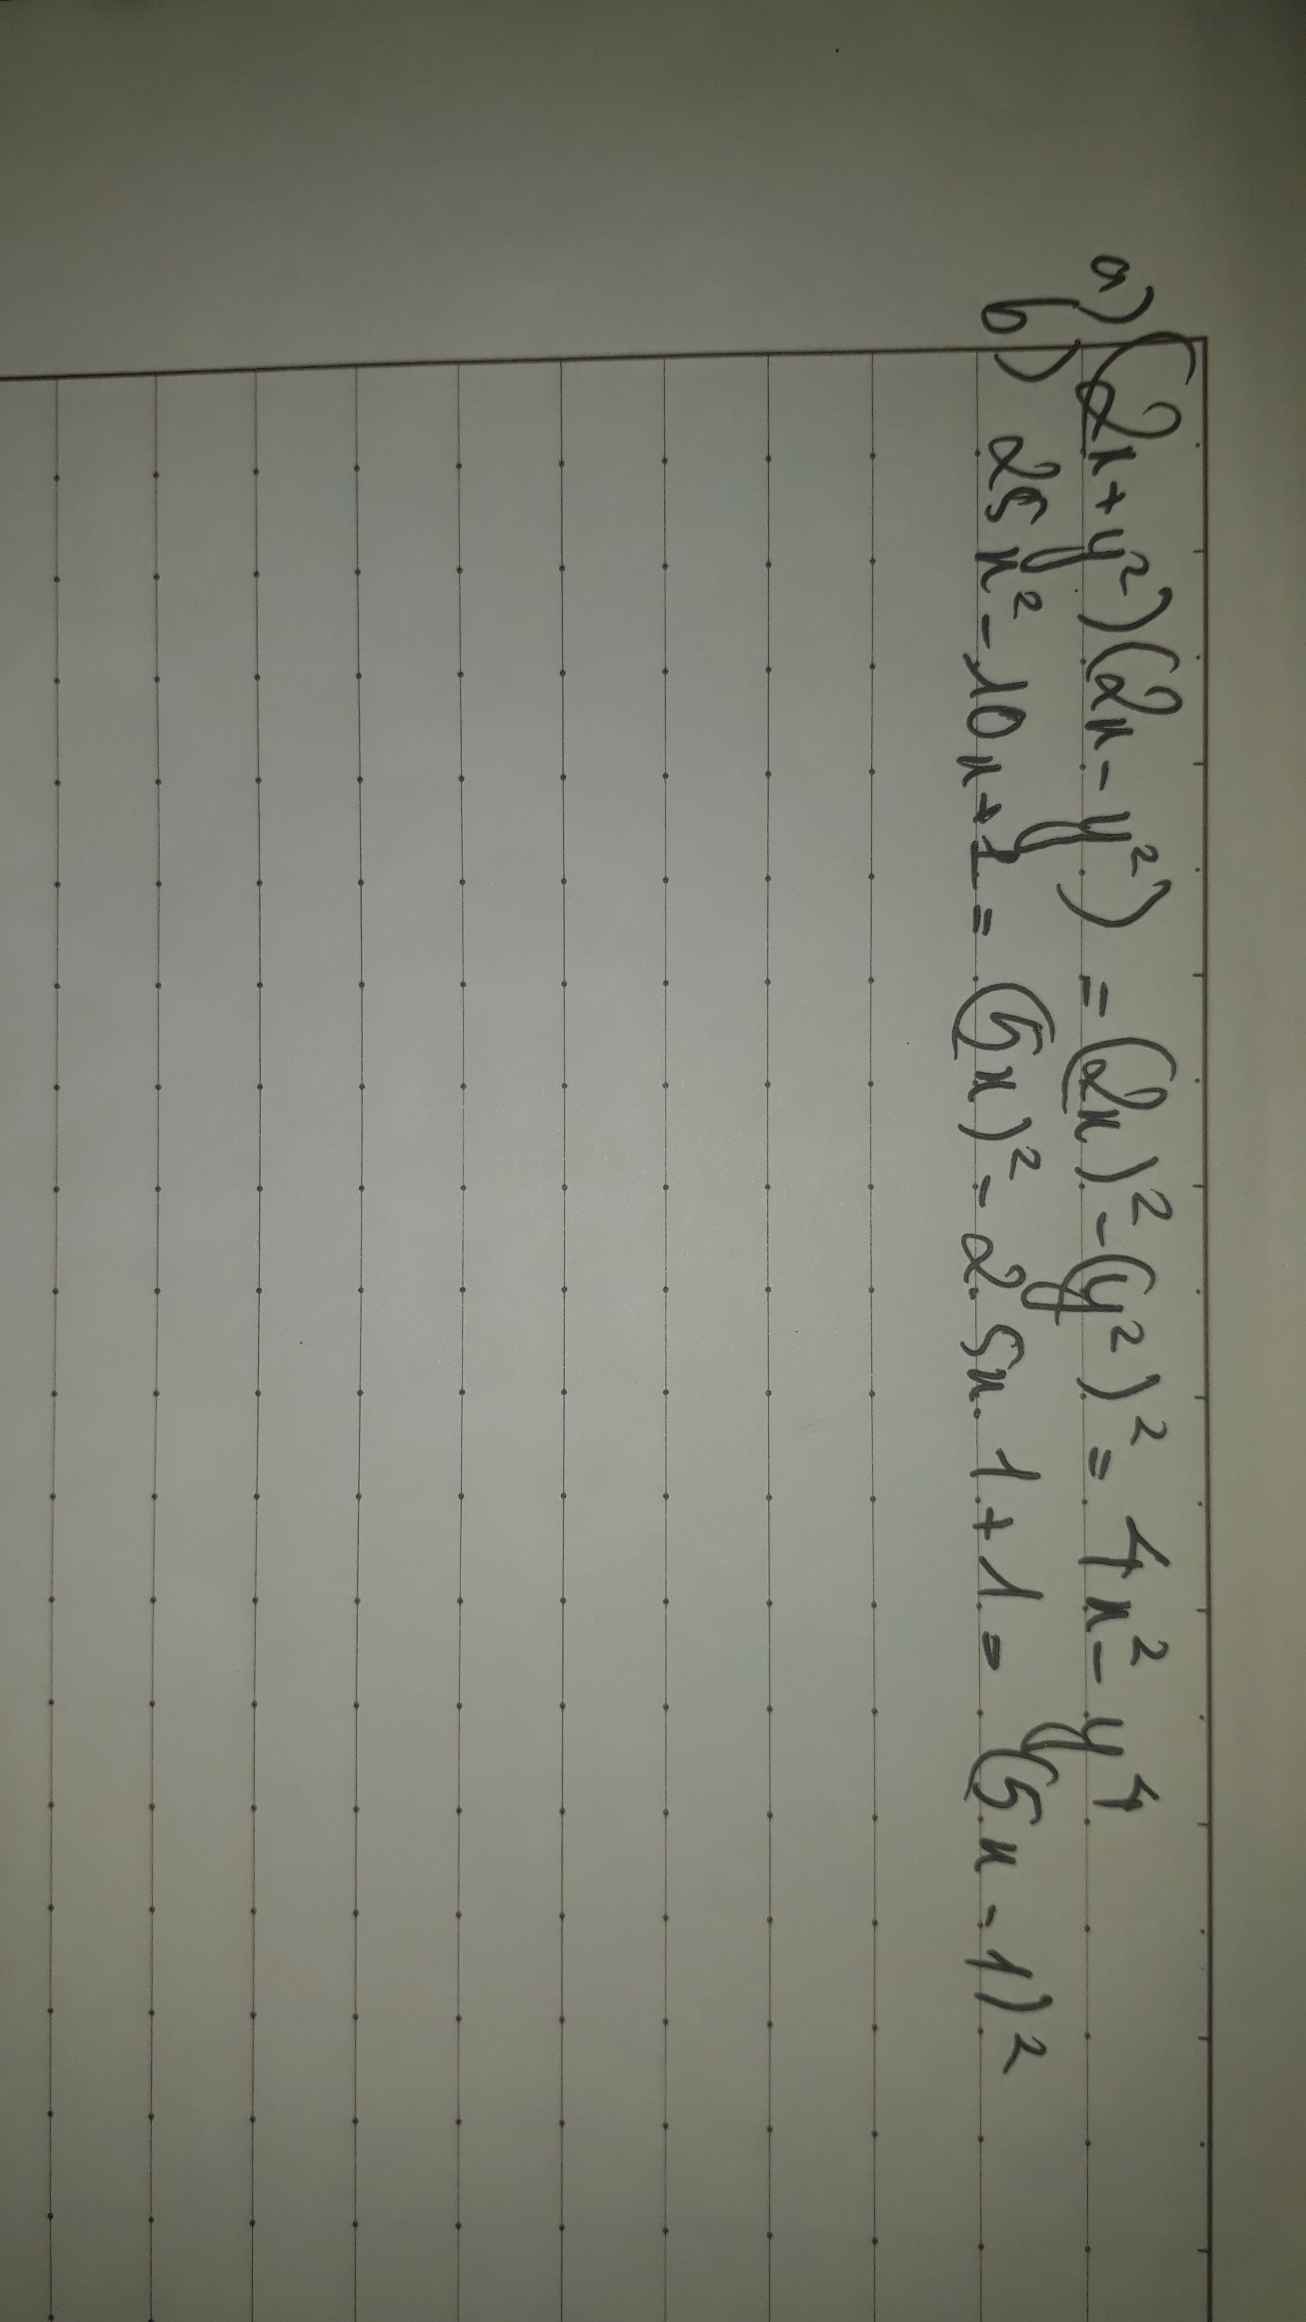 a) (2x+y²)(2x-y²) = (2x)²-(y²)² = 4x²-y⁴
b) 25x²-10x+1 = (5x)²-2.5x.1+1= (5x-1)²